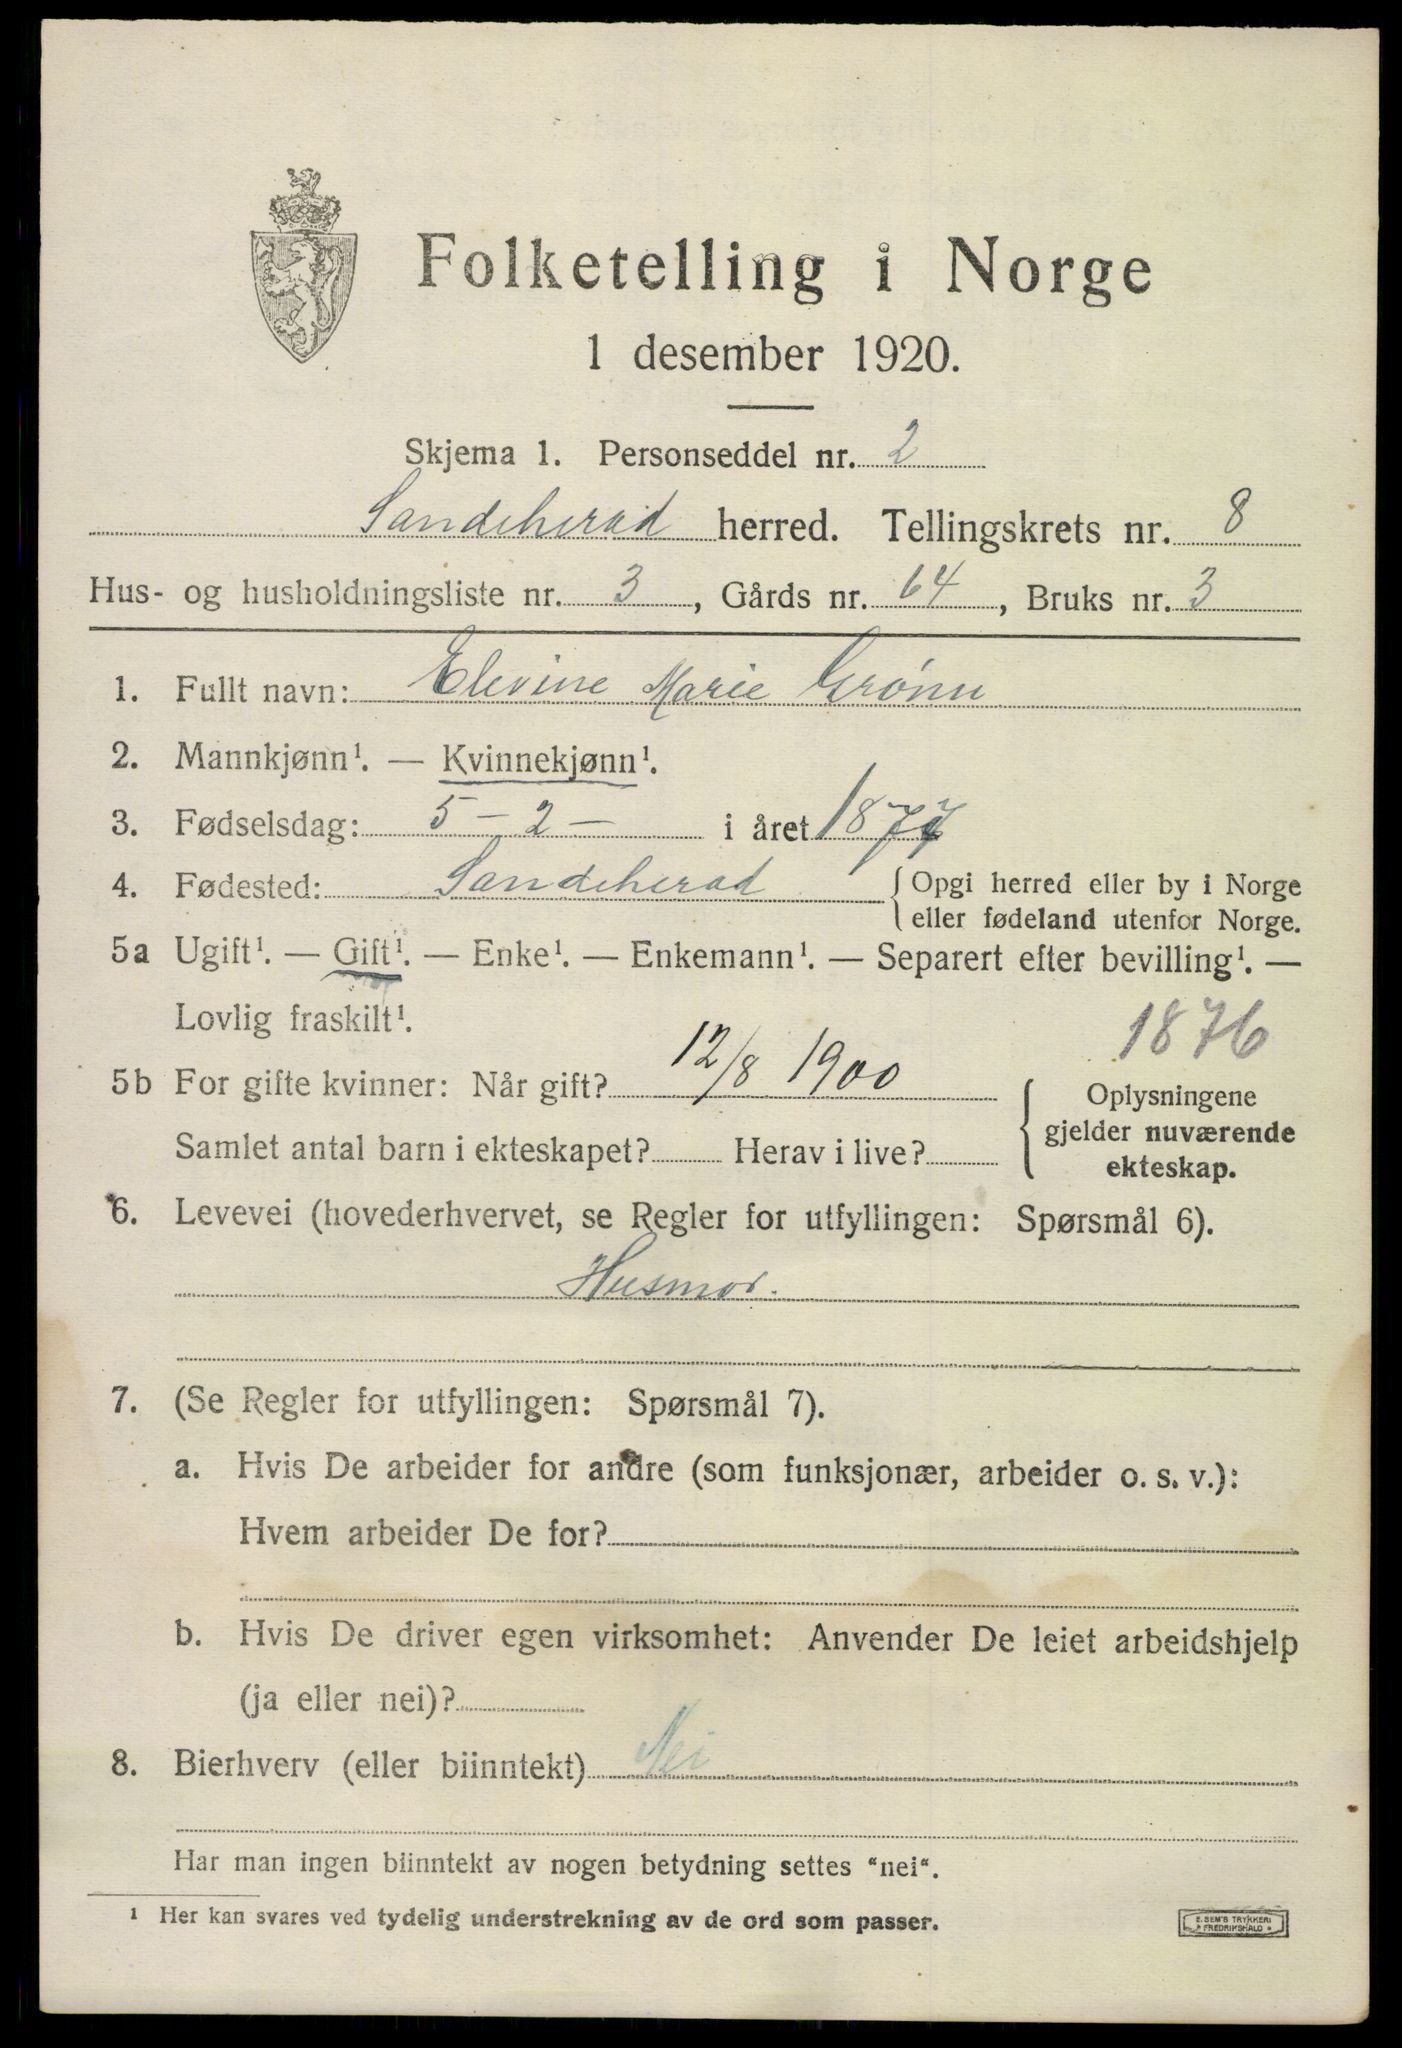 Folketelling i Norge
1 desember 1920.
Skjema 1. Personseddel nr. 2
Sandeherad herred. Tellingskrets nr. 8
Hus- og husholdningsliste nr. 3, Gårds nr. 64, Bruks nr. 3
1. Fullt navn: Elevine Marie Grønn
2. Mannkjønn¹. — Kvinnekjønn¹.
3. Fødselsdag: 5 - 2 - i året 1877
4. Fødested: Sandeherad { Opgi herred eller by i Norge
eller fødeland utenfor Norge.
5a Ugift¹. — Gift¹. — Enke¹. — Enkemann¹. — Separert efter bevilling¹. —
Lovlig fraskilt¹.
1876
5b For gifte kvinner: Når gift? 12/8 1900
Samlet antal barn i ekteskapet? Herav i live?
Oplysningene
gjelder nuværende
ekteskap.
6. Levevei (hovederhvervet, se Regler for utfyllingen: Spørsmål 6).
Husmor.
7. (Se Regler for utfyllingen: Spørsmål 7).
a. Hvis De arbeider for andre (som funksjonær, arbeider o. s. v.):
Hvem arbeider De for?
b. Hvis De driver egen virksomhet: Anvender De leiet arbeidshjelp
(ja eller nei)?
8. Bierhverv (eller biinntekt) Nei
Har man ingen biinntekt av nogen betydning settes "nei".
¹ Her kan svares ved tydelig understrekning av de ord som passer.
E. SEM'S TRYKKERI
FREDRIKSHALD